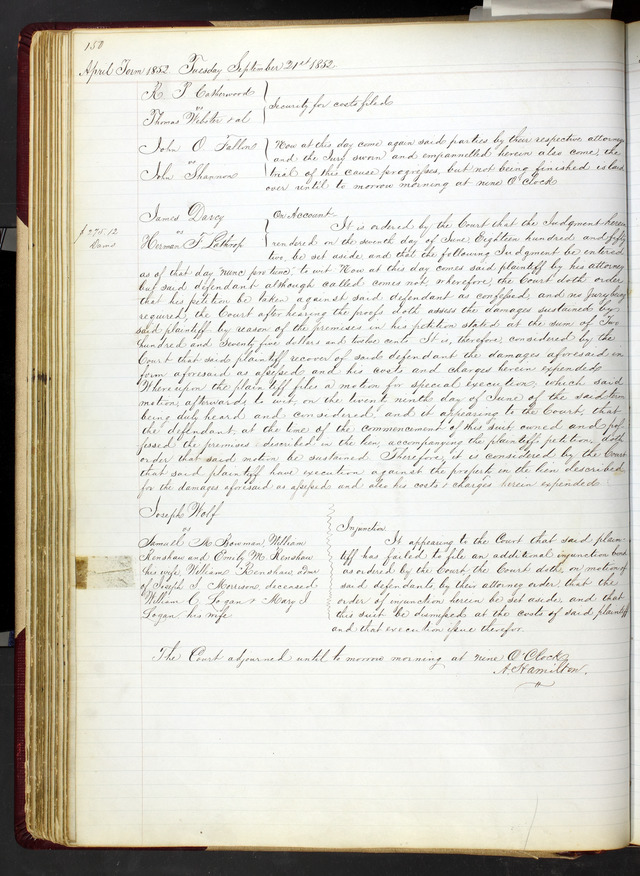 150
April Term 1852 Tuesday September 21st 1852
R P Catherwood
vs
Thomas Webster & al
Security for costs filed
John O. Fallon
vs
John Shannon
Now at this day come again said parties by their respective attorneys
and the Jury sworn and empannelled herein also come, the
trial of this cause progresses, but not being finished is laid
over until to morrow morning at nine O'Clock
James Darcy
vs
Herman F. Lathrop
$275.12
Dams
On Account.
It is ordered by the Court that the Judgment herein
rendered on the seventh day of June Eighteen hundred and fifty
two be set aside and that the following Judgment be entered
as of that day nunc pro tunc, to wit Now at this day comes said plaintiff by his attorney
but said defendant although called comes not, wherefore, the Court doth order
that his petition be taken against said defendant as confessed, and no jury being
required, the Court after hearing the proofs doth assess the damages sustained by
said plaintiff by reason of the premises in his petition stated at the sum of Two
hundred and Seventy five dollars and twelve cents It is, therefore, considered by the
Court that said plaintiff recover of said defendant the damages aforesaid in
form aforesaid as assessed and his costs and charges herein expended
Whereupon the plaintiff files a motion for special execution, which said
motion, afterwards, to wit, on the twenty ninth day of June of the said term
being duly heard and considered, and it appearing to the Court, that
the defendant, at the time of the commencement of this suit owned and pos
sessed the premises described in the lien, accompanying the plaintiffs petition, doth
order that said motion be sustained Therefore, it is considered by the Court
that said plaintiff have execution against the property in the lien described
for the damages aforesaid as assessed and also his costs & charges herein expended
Joseph Wolf
vs
Samuel M. Bowman, William
Renshaw and Emily M. Renshaw
his wife, William Renshaw adm
of Joseph J. Morrison, deceased
William C. Logan & Mary J.
Logan his wife
Injunction
It appearing to the Court that said plain-
tiff has failed to file an additional injunction bond
as ordered by the Court, the Court doth, on motion of
said defendants by their attorney order that the
order of injunction herein be set aside and that
this suit be dismissed at the costs of said plaintiff
and that execution issue therefor.
The Court adjourned until to morrow morning at nine O'Clock
A. Hamilton.